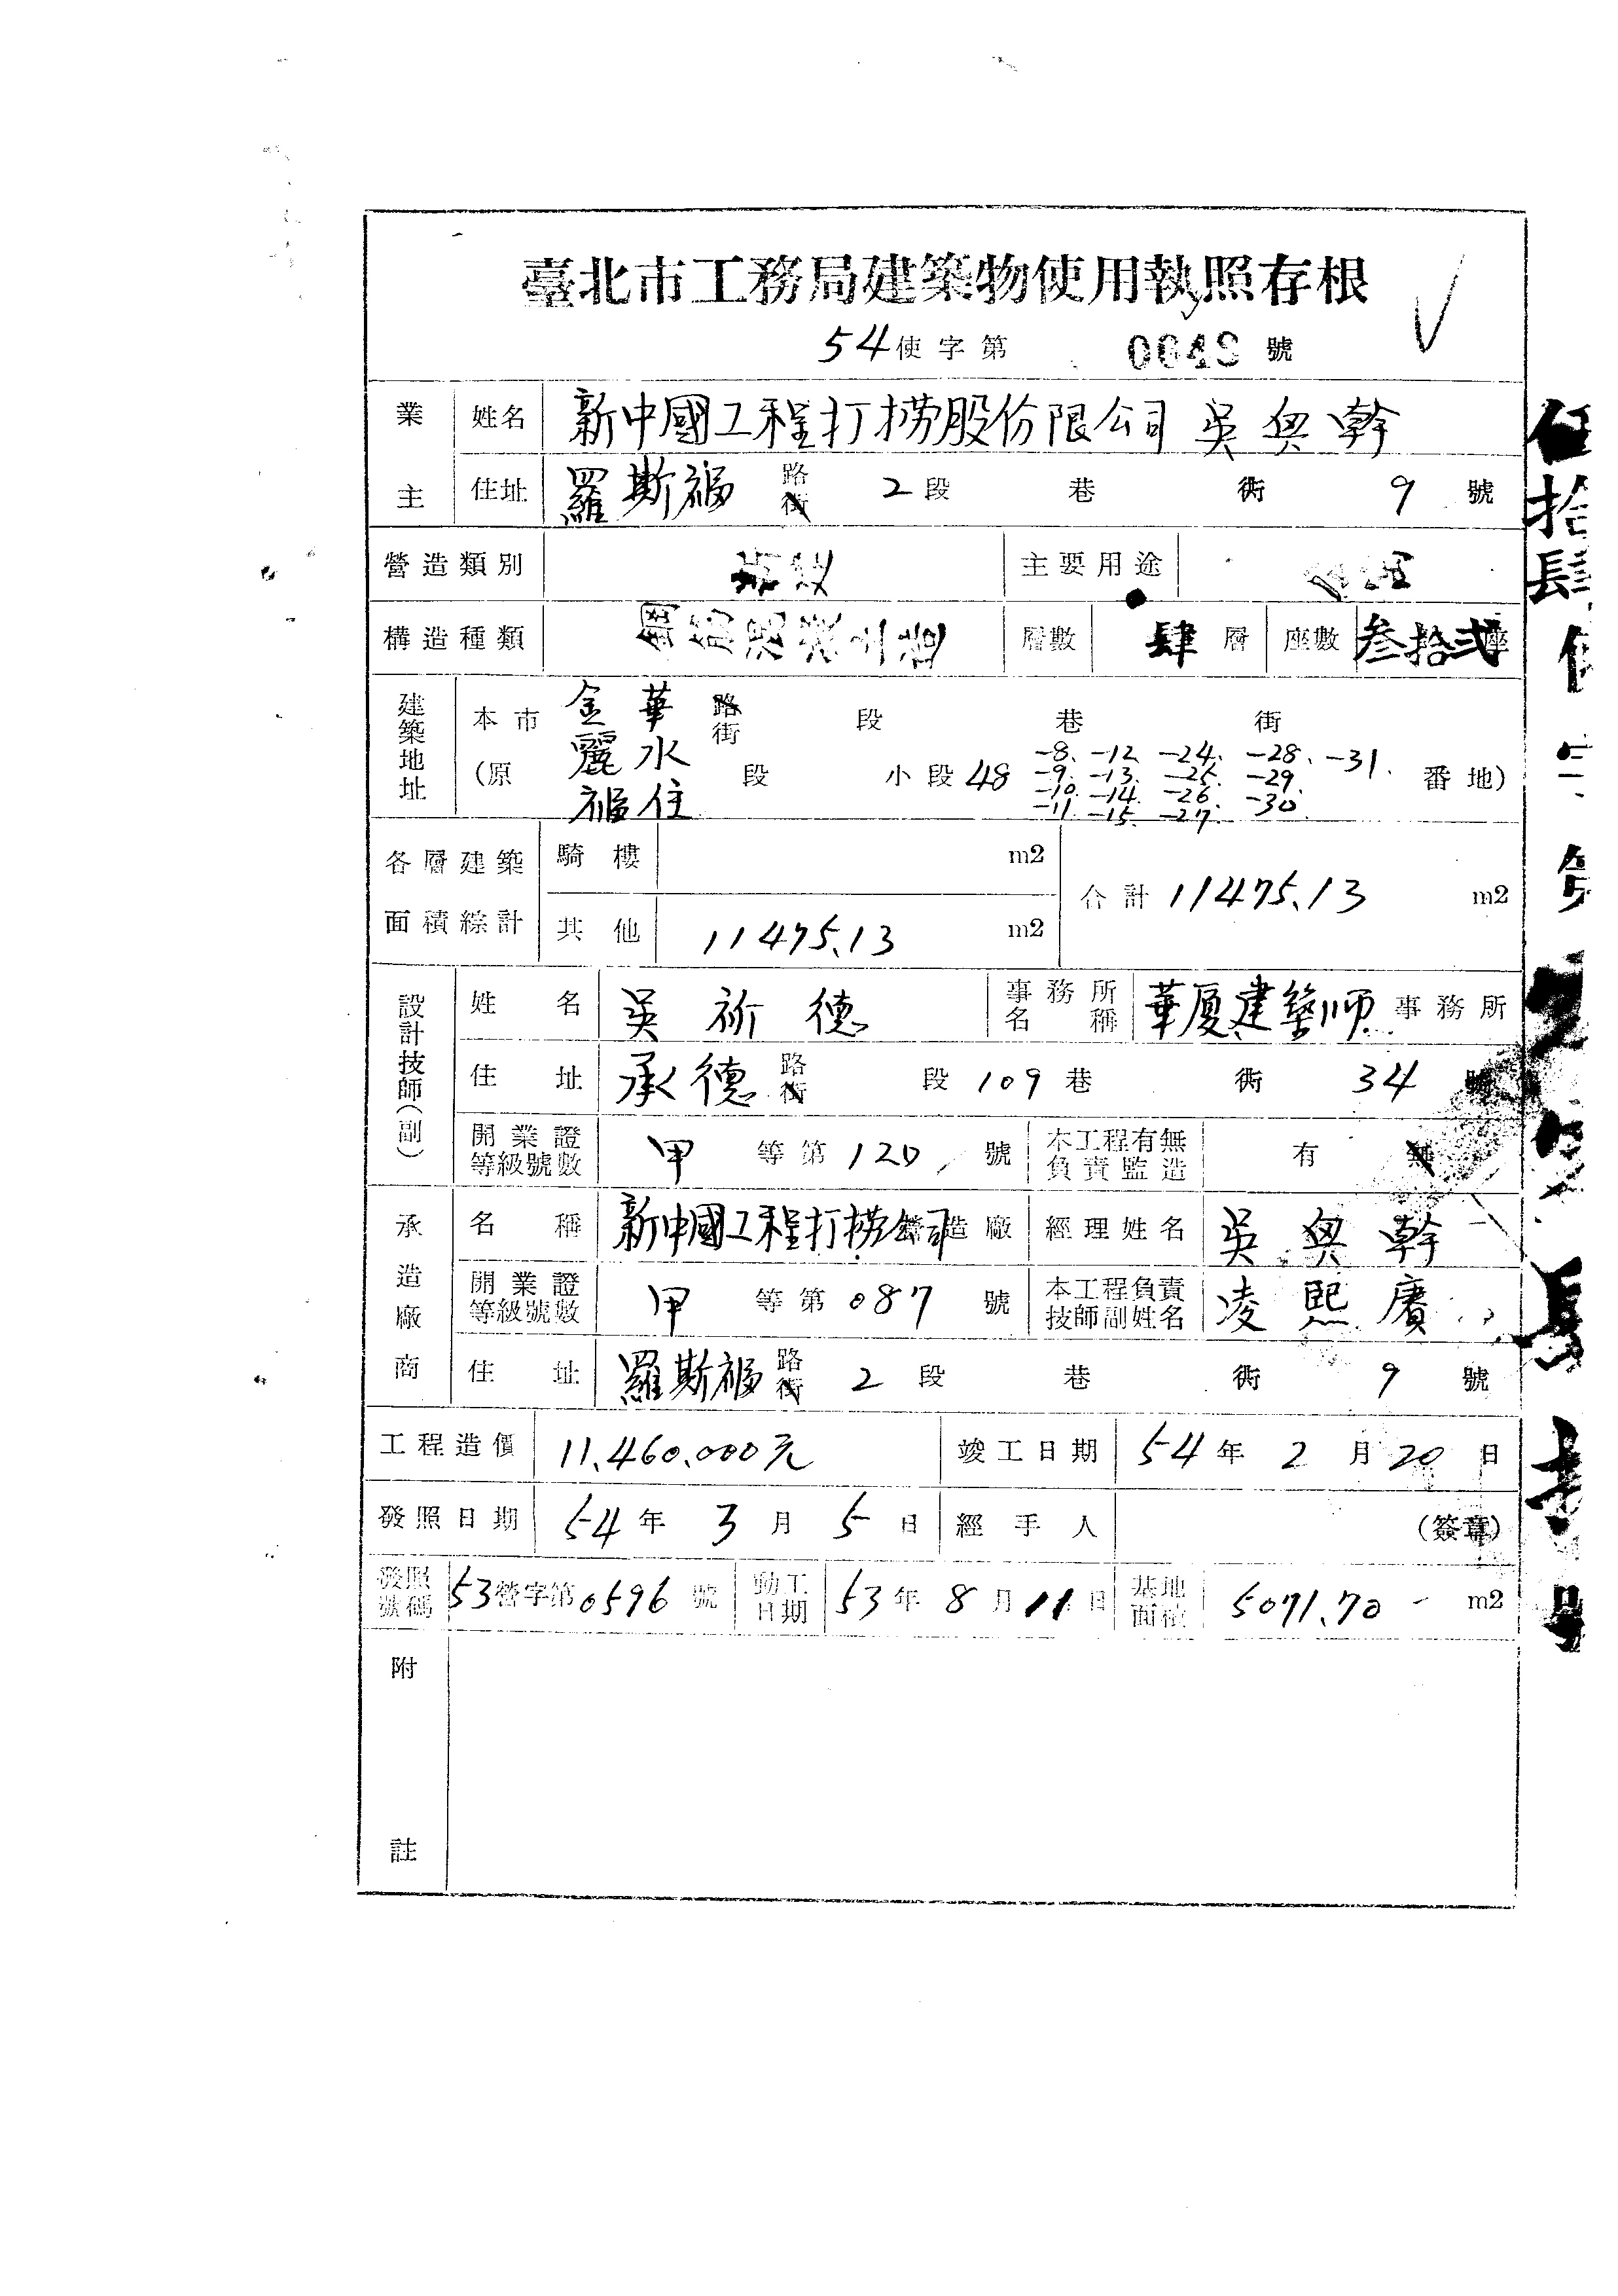 臺北市工務局建築物使用執照存根
54使字第 號
業主 姓名 新中國工程打撈股份限公司 吳
住址 羅斯福 路街 2段 巷 衖 9 號
營造類別 主要用途
構造種類 層數 肆 層 座數 叁拾弍座
建築地址 本市 金華 路街 段 巷 街
麗水
(原 段 小段48 -8. -12. -24. -28. -31. 番地)
-9. -13. -25. -29.
-10. -14. -26. -30.
-11. -15. -27.
福住
各層建築面積綜計 騎樓 m2 合計 11475.13 m2
其他 11475.13 m2
設計技師(副) 姓名 吳祈德 事務所名稱 華廈建築師事務所
住址 承德 路街 段 109巷 衖 34 號
開業證等級號數 甲 等第 120 號 本工程有無負責監造 有 無
承造廠商 名稱 新中國工程打撈公司 造廠 經理姓名 吳
開業證等級號數 甲 等第 087 號 本工程負責技師副姓名 凌熙賡
住址 羅斯福 路街 2 段 巷 衖 9 號
工程造價 11.460.000元 竣工日期 54年 2 月 20 日
發照日期 54年 3 月 5 日 經手人 (簽章)
發照號碼 53營字第0596號 動工日期 53年 8 月 11 日 基地面積 5071.70 m2
附註